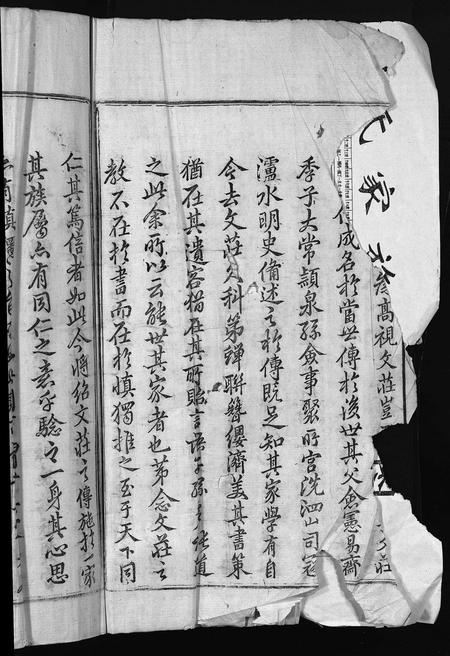 氏家
高視文莊豈
成名於當世傳於後世其父僉憲易齋
季子太常穎泉孫僉事聚所宫洗泗山司寇
瀘水明史備述之於傳既足知其家學有自
今去文莊久科第蟬聯簪纓濟美其書策
猶在其遺容猶在其所貽言語子孫多能道
之此余所以云能世其家者也第念文莊之
教不在於書而在於慎獨推之至于天下同
仁其篤信者如此今將紹文莊之傳施於一家
其族屬亦有同仁之意乎驗之一身其心思